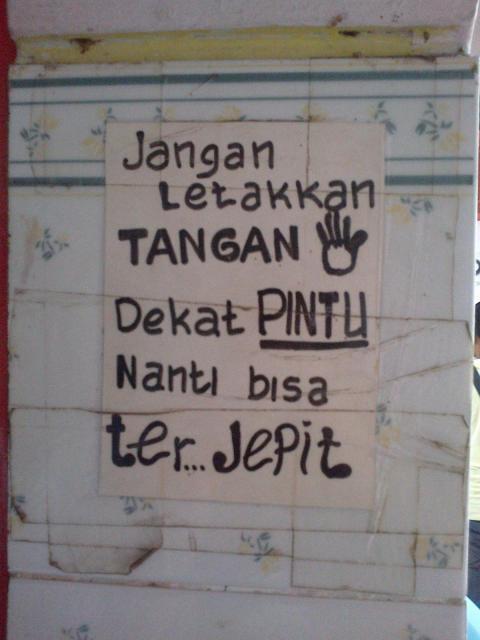 Jangan
Letakkan
TANGAN
Dekat PINTU
Nanti bisa
ter... Jepit